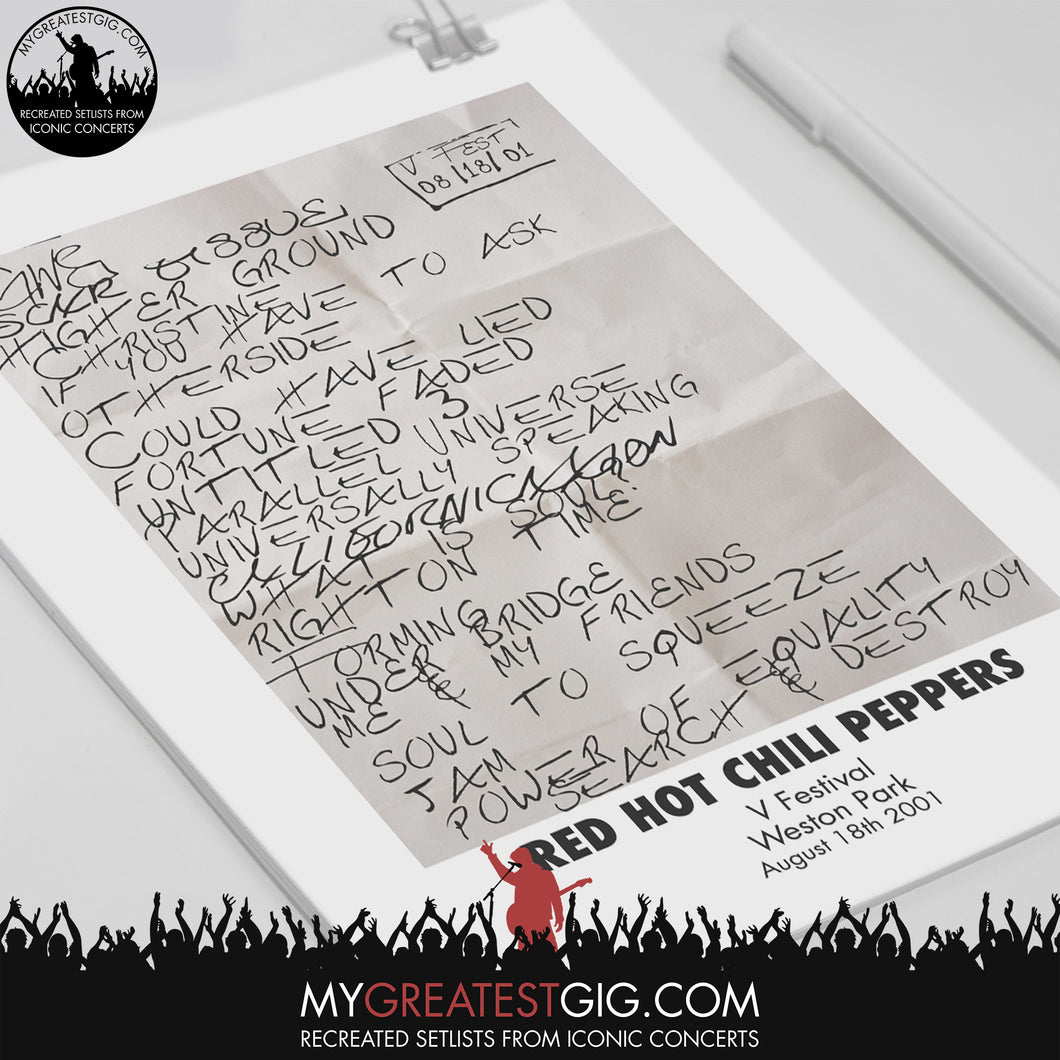 MYGREATESTGIG.COM
RECREATED SETLISTS FROM
ICONIC CONCERTS
V FEST
08/18/01
SCAR TISSUE
HIGHER GROUND
CHRISTINE
IF YOU HAVE TO ASK
OTHERSIDE
COULD HAVE LIED
FORTUNE FADED
UNTITLED 3
PARALLEL UNIVERSE
UNIVERSALLY SPEAKING
CALIFORNICATION
WHAT IS SOUL?
RIGHT ON TIME
UNDER BRIDGE
ME & MY FRIENDS
SOUL TO SQUEEZE
JAM
POWER OF EQUALITY
SEARCH & DESTROY
RED HOT CHILI PEPPERS
V Festival
Weston Park
August 18th 2001
MYGREATESTGIG.COM
RECREATED SETLISTS FROM ICONIC CONCERTS